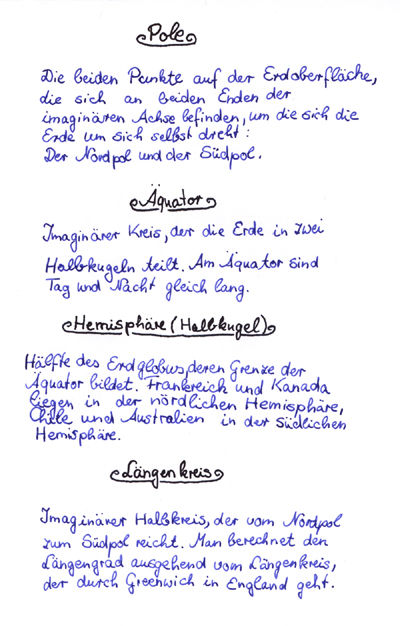 Pole
Die beiden Punkte auf der Erdoberfläche,
die sich an beiden Enden der
imaginären Achse befinden, um die sich die
Erde um sich selbst dreht:
Der Nordpol und der Südpol.
Äquator
Imaginärer Kreis, der die Erde in zwei
Halbkugeln teilt. Am Äquator sind
Tag und Nacht gleich lang.
Hemisphäre (Halbkugel)
Hälfte des Erdglobus, deren Grenze der
Äquator bildet. Frankreich und Kanada
liegen in der nördlichen Hemisphäre,
Chile und Australien in der südlichen
Hemisphäre.
Längenkreis
Imaginärer Halbkreis, der vom Nordpol
zum Südpol reicht. Man berechnet den
Längengrad ausgehend vom Längenkreis,
der durch Greenwich in England geht.